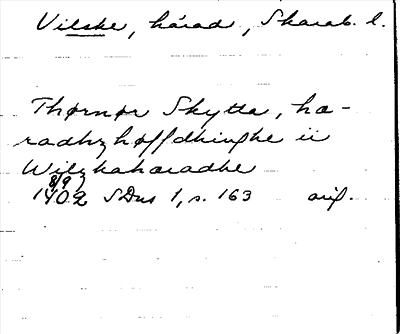 Vilske, härad, Skarab. l.
Thørnør Skytta, hæ-
radhzhøffdhinghe ii
Wilzkahæradhe
8/9
1402 SDns 1, s. 163 orig.